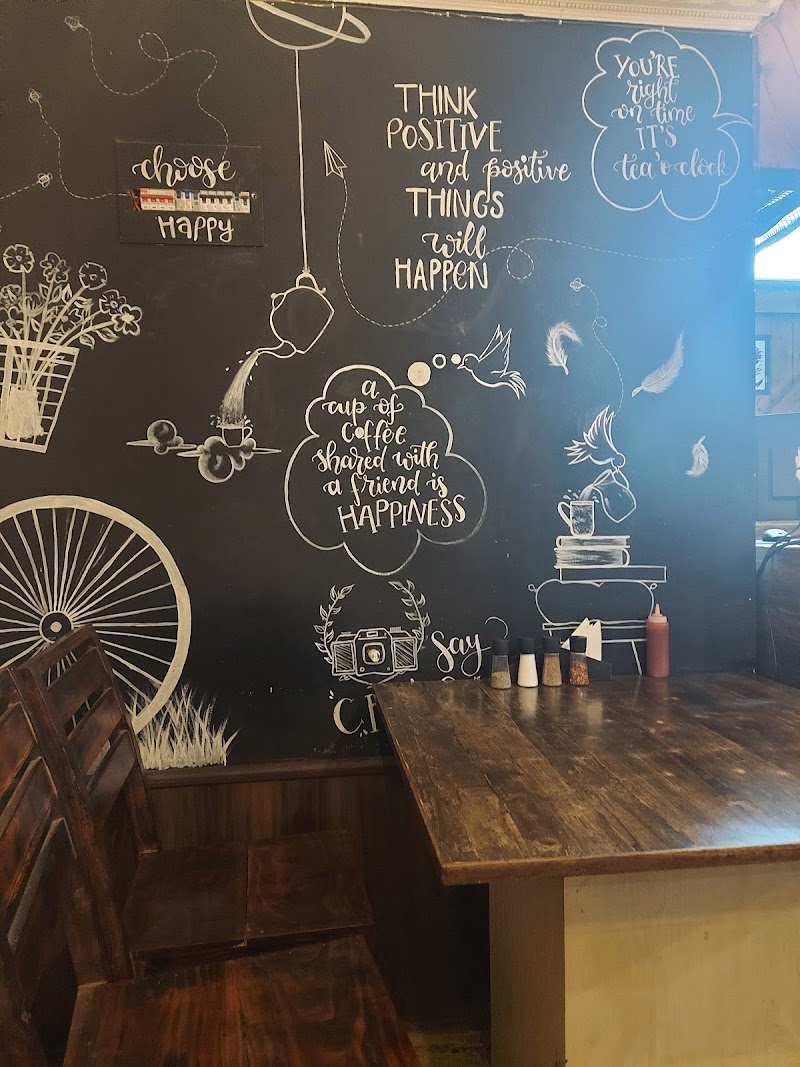 choose
HAPPY
THINK
POSITIVE
and positive
THINGS
will
HAPPEN
YOU'RE
right
on time
IT'S
tea'o clock
a
cup of
Coffee
shared with
a friend is
HAPPINESS
Say